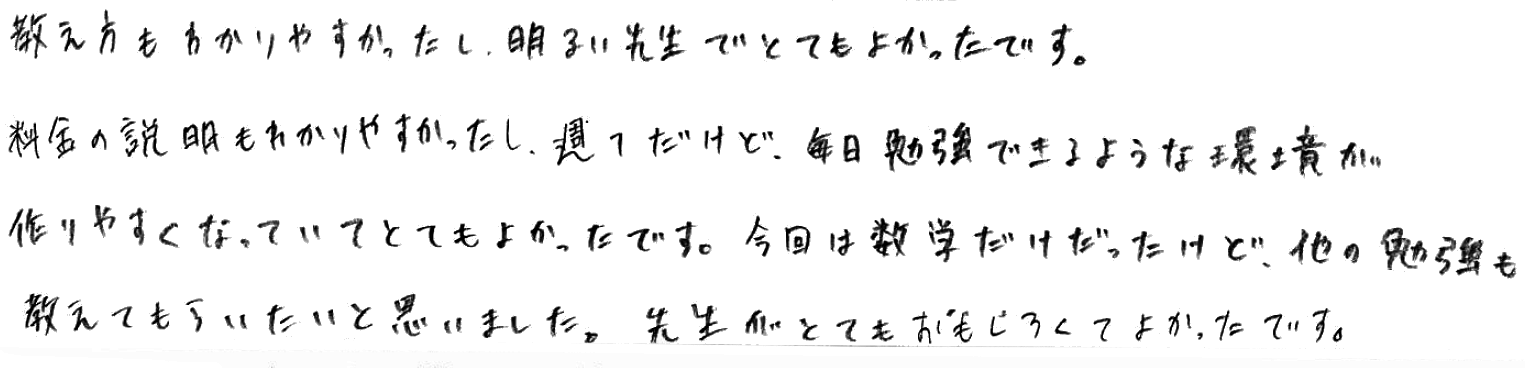 教え方もわかりやすかったし、明るい先生でとてもよかったです。
料金の説明もわかりやすかったし、週1だけど、毎日勉強できるような環境が
作りやすくなっていてとてもよかったです。今回は数学だけだったけど、他の勉強も
教えてもらいたいと思いました。先生がとてもおもしろくてよかったです。